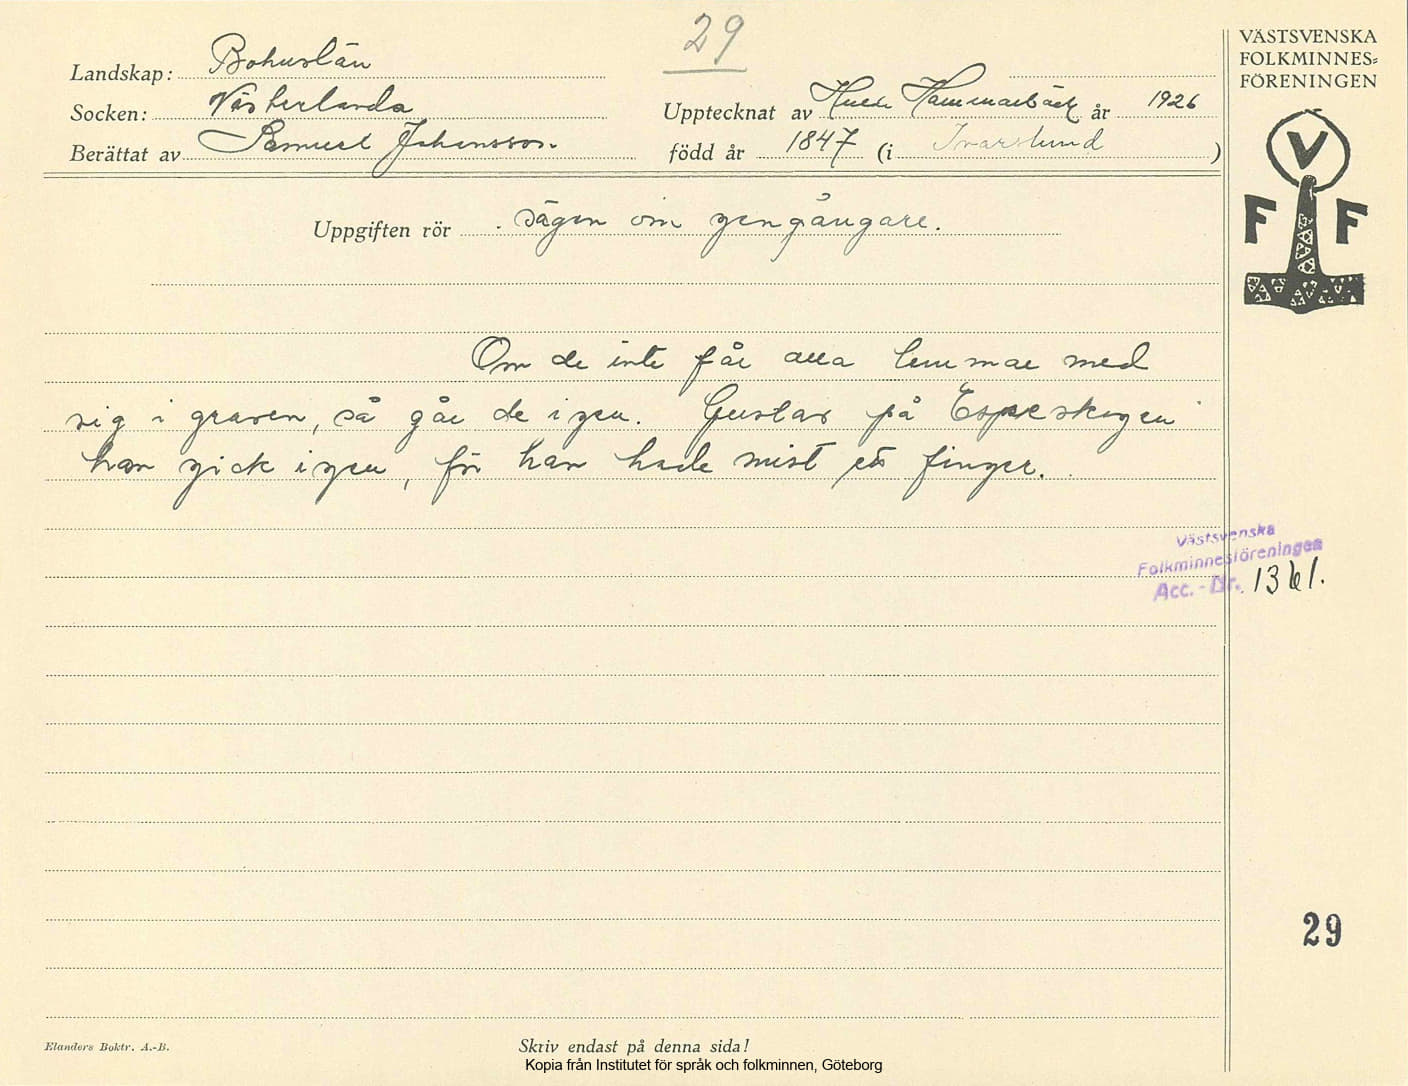 29
VÄSTSVENSKA
FOLKMINNES=
FÖRENINGEN
Landskap: Bohuslän
Socken: Västerlanda
Upptecknat av Hulda Hammarbäck år 1926
Berättat av Samuel Johansson.
född år 1847 (i Ivarslund)
V
F F
Uppgiften rör sägen om gengångare.
Om de inte får alla lemmar med
sig i graven, så går de igen. Gustav på Espeskogen
han gick igen, för han hade mist ett finger.
Västsvenska
Folkminnesföreningen
Acc.-Nr. 1361.
29
Elanders Boktr. A.-B.
Skriv endast på denna sida!
Kopia från Institutet för språk och folkminnen, Göteborg